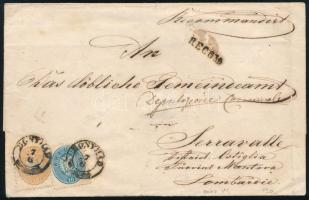 Recommandirt
RECOM
An
Das löbliche Gemeindeamt
Deputazione Comunale
Serravalle
District Ostiglia
Provinz Mantova
Lombardie
7
6
7
6